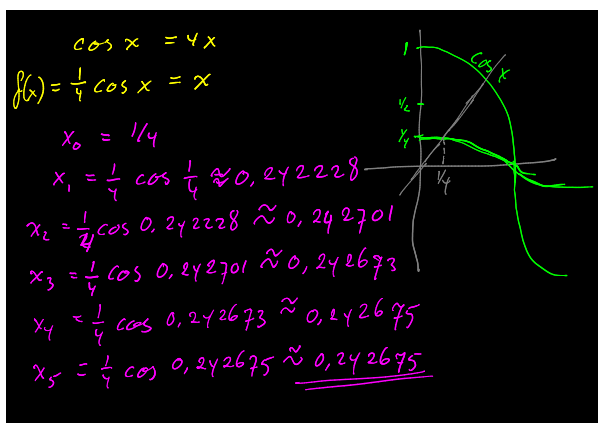 cos x = 4x
f(x) = 1/4 cos x = x
x₀ = 1/4
x₁ = 1/4 cos 1/4 ≈ 0,242228
x₂ = 1/4 cos 0,242228 ≈ 0,242701
x₃ = 1/4 cos 0,242701 ≈ 0,242673
x₄ = 1/4 cos 0,242673 ≈ 0,242675
x₅ = 1/4 cos 0,242675 ≈ 0,242675
1
cos x
1/2
1/4
1/4